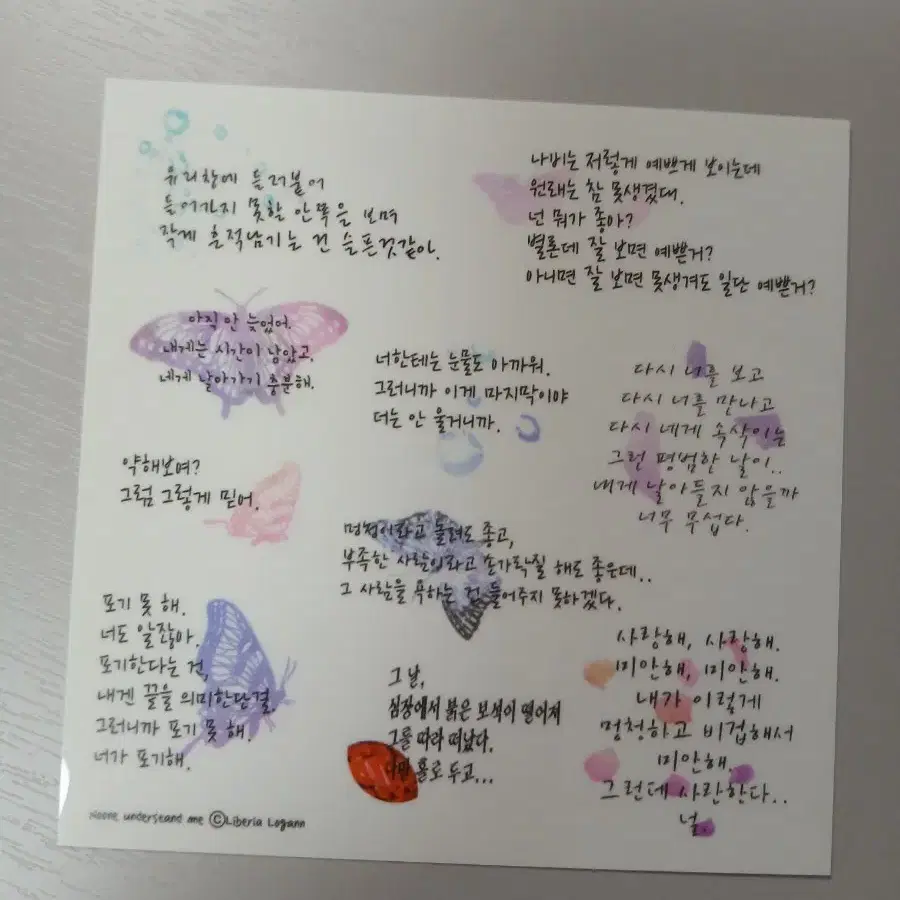 유리창에 들러붙어
들어가지 못할 안쪽을 보며
작게 흔적남기는 건 슬픈것같아.
나비는 저렇게 예쁘게 보이는데
원래는 참 못생겼대.
넌 뭐가 좋아?
별론데 잘 보면 예쁜거?
아니면 잘 보면 못생겨도 일단 예쁜거?
아직 안 늦었어.
내게는 시간이 남았고,
네게 날아가기 충분해.
너한테는 눈물도 아까워.
그러니까 이게 마지막이야
더는 안 울거니까.
다시 너를 보고
다시 너를 만나고
다시 네게 속삭이는
그런 평범한 날이..
내게 날아들지 않을까
너무 무섭다.
약해보여?
그럼 그렇게 믿어.
멍청이라고 놀려도 좋고,
부족한 사람이라고 손가락질 해도 좋은데..
그 사람을 욕하는 건 들어주지 못하겠다.
포기 못 해.
너도 알잖아.
포기한다는 건,
내겐 끝을 의미한단걸.
그러니까 포기 못 해.
너가 포기해.
그 날,
심장에서 붉은 보석이 떨어져
그를 따라 떠났다.
나만 홀로 두고...
사랑해, 사랑해.
미안해, 미안해.
내가 이렇게
멍청하고 비겁해서
미안해.
그런데 사랑한다..
널.
Noone understand me ⓒLiberia Logann